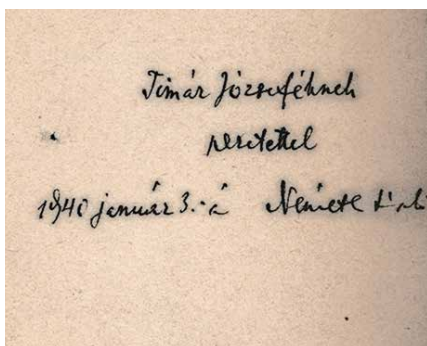 Timár Józseféknek
szeretettel
1940 január 3.-á Németh